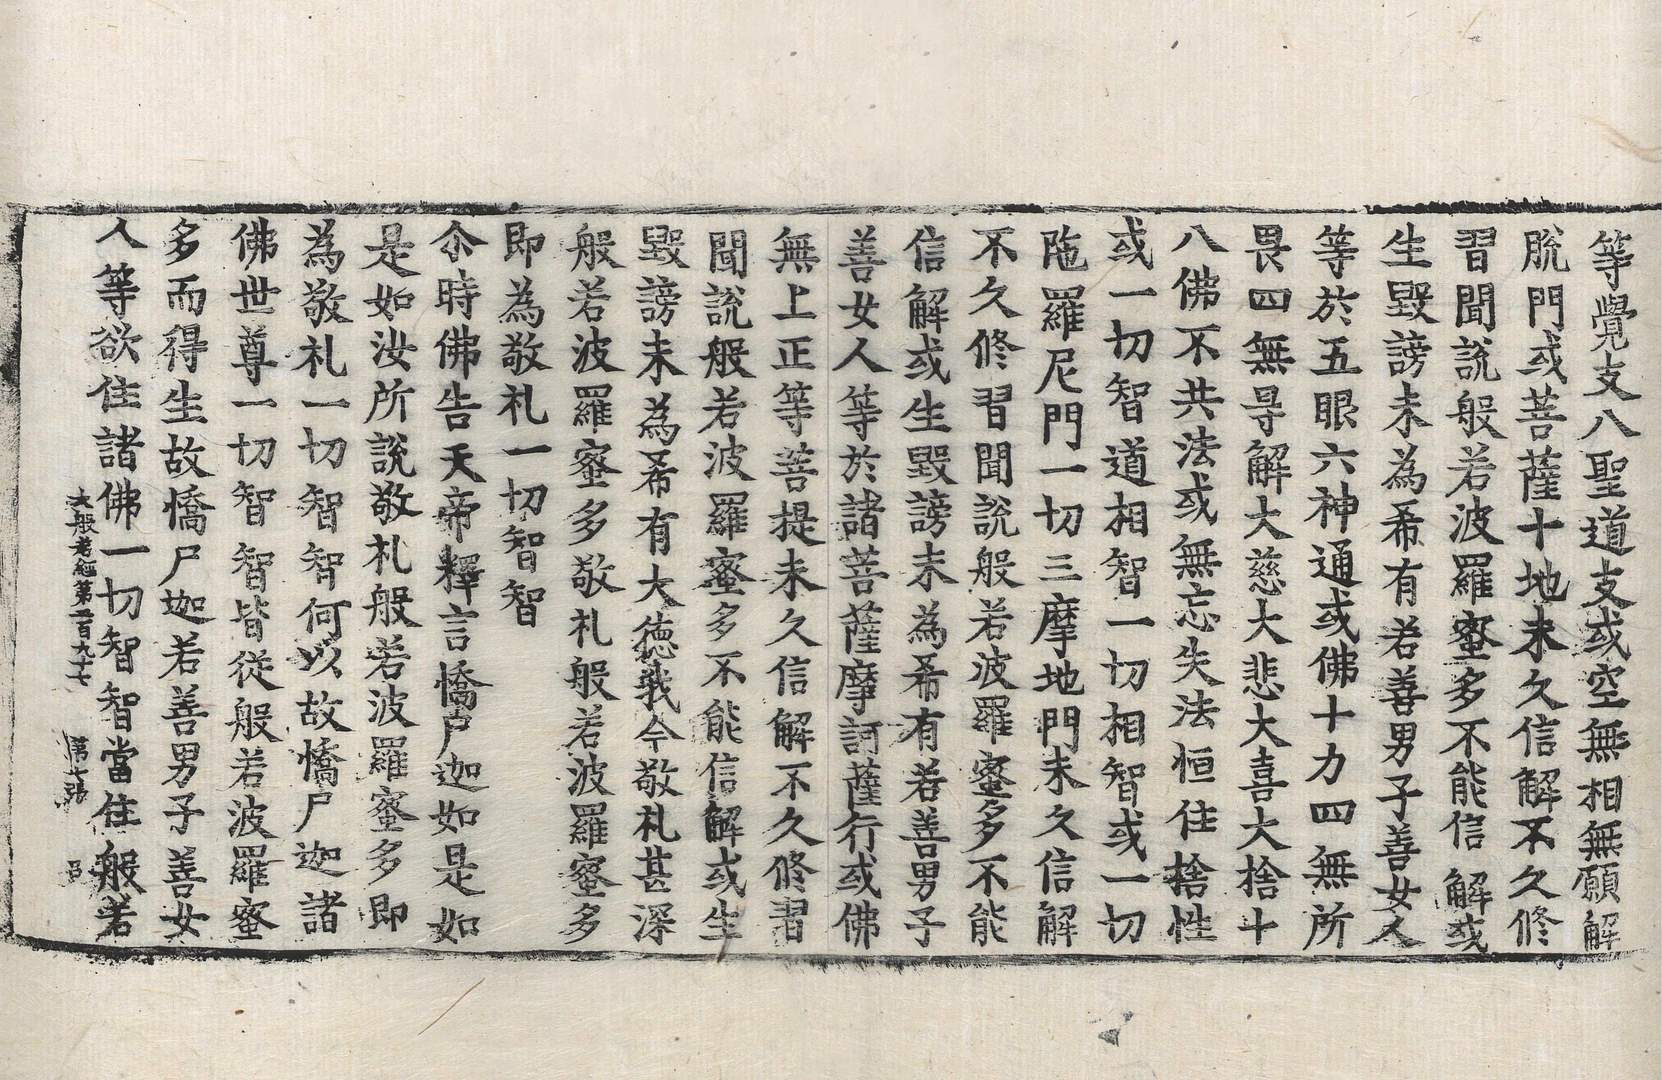 等覺支八聖道支或空無相無願解
脫門或菩薩十地未久信解不久修
習聞說般若波羅蜜多不能信解或
生毀謗未為希有若善男子善女人
等於五眼六神通或佛十力四無所
畏四無㝵解大慈大悲大喜大捨十
八佛不共法或無忘失法恒住捨性
或一切智道相智一切相智或一切
陁羅尼門一切三摩地門未久信解
不久修習聞說般若波羅蜜多不能
信解或生毀謗未為希有若善男子
善女人等於諸菩薩摩訶薩行或佛
無上正等菩提未久信解不久修習
聞說般若波羅蜜多不能信解或生
毀謗未為希有大德我今敬礼甚深
般若波羅蜜多敬礼般若波羅蜜多
即為敬礼一切智智
尒時佛告天帝釋言憍尸迦如是如
是如汝所說敬礼般若波羅蜜多即
為敬礼一切智智何以故憍尸迦諸
佛世尊一切智智皆從般若波羅蜜
多而得生故憍尸迦若善男子善女
人等欲住諸佛一切智智當住般若
大般若經第二百九十七 第七張